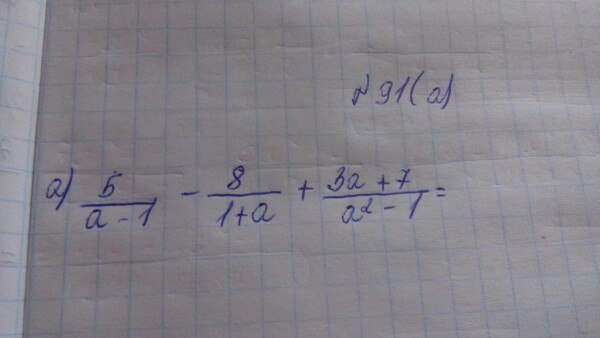 № 91(а)
а) 5/(a - 1) - 8/(1+a) + (3a + 7)/(a² - 1) =